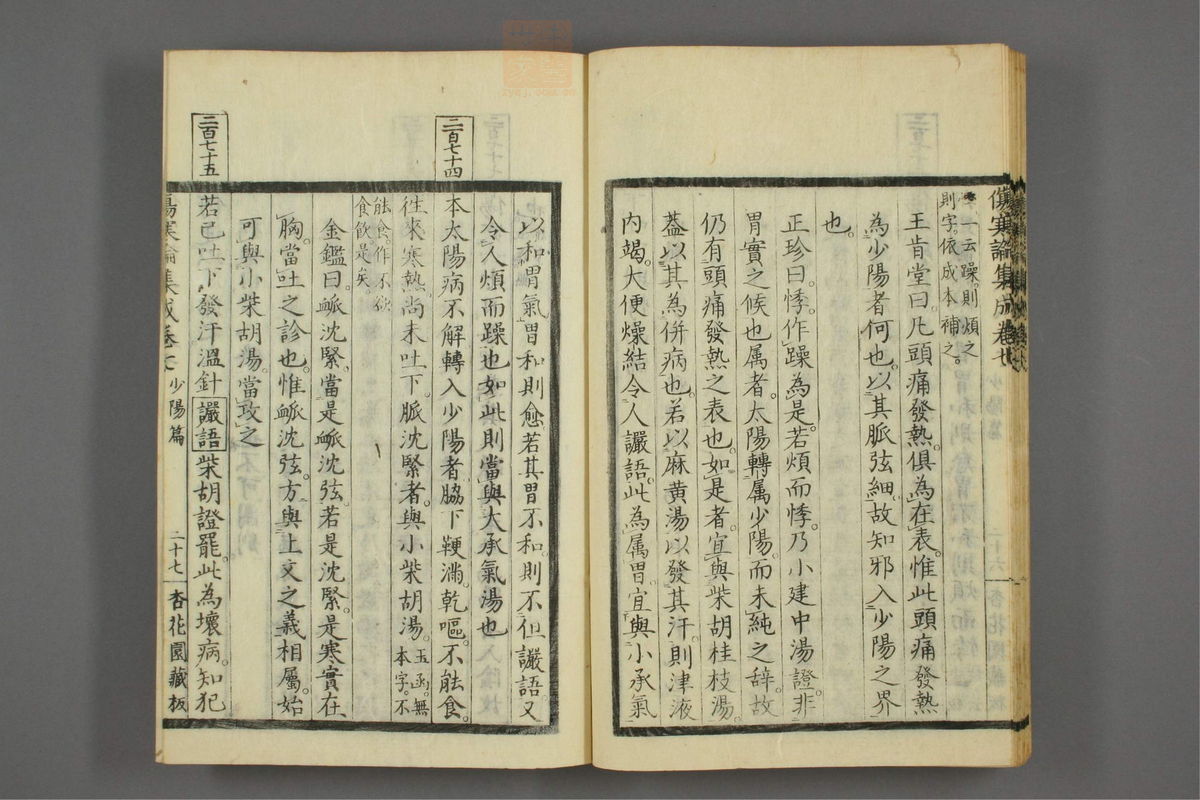 傷寒論集成卷七
一云躁。則煩之
則字。依成本補之。
王肯堂曰。凡頭痛發熱。俱為在表。惟此頭痛發熱
為少陽者何也。以其脈弦細。故知邪入少陽之界
也。
正珍曰。悸。作躁為是。若煩而悸。乃小建中湯證。非
胃實之候也。属者。太陽轉属少陽。而未純之辞。故
仍有頭痛發熱之表也。如是者。宜與柴胡桂枝湯。
蓋以其為併病也。若以麻黄湯以發其汗。則津液
內竭。大便燥結。令人讝語。此為属胃。宜與小承氣
以和胃氣。胃和則愈。若其胃不和。則不但讝語。又
令人煩而躁也。如此則當與大承氣湯也
二百七十四
本太陽病不解。轉入少陽者。脇下鞕滿。乾嘔。不能食。
往來寒熱。尚未吐下。脈沈緊者。與小柴胡湯。玉函。無
本字。不
能食。作不欲
食飲。是矣。
金鑑曰。脈沈緊。當是脈沈弦。若是沈緊。是寒實在
胸。當吐之診也。惟脈沈弦。方與上文之義相屬。始
可與小柴胡湯。當改之
二百七十五
若已吐下發汗溫針讝語柴胡證罷。此為壞病。知犯
傷寒論集成卷七 少陽篇 二十七 杏花園藏板